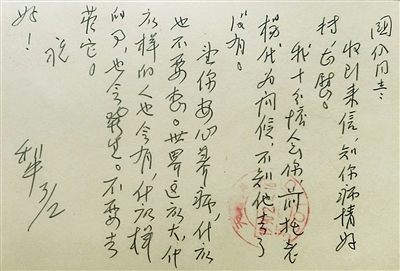 同志:
收到来信,知你病情好
转,甚慰。
我十分惦念你,前托老
杨代为问候,不知他去了
没有。
望你安心养病,什么
也不要想。世界这么大,什
么样的人也会有,什么样
的事,也会发生。不要去
管它。
祝
好!
犁
3/2